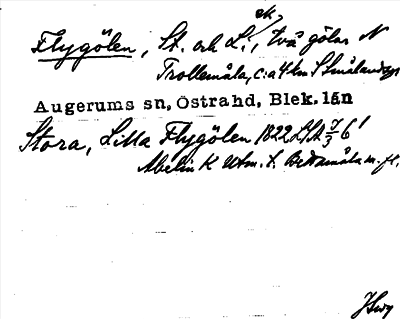 ek,
Flygölen, St. och L:, två gölar N
Trollemåla, c:a 4 km S Smålandsgr.
Augerums sn, Östrahd, Blek. län
Stora, Lilla Flygölen 1822 LSA 7/3 6'
Abelin K Utm. t. Bettamåla m. fl.